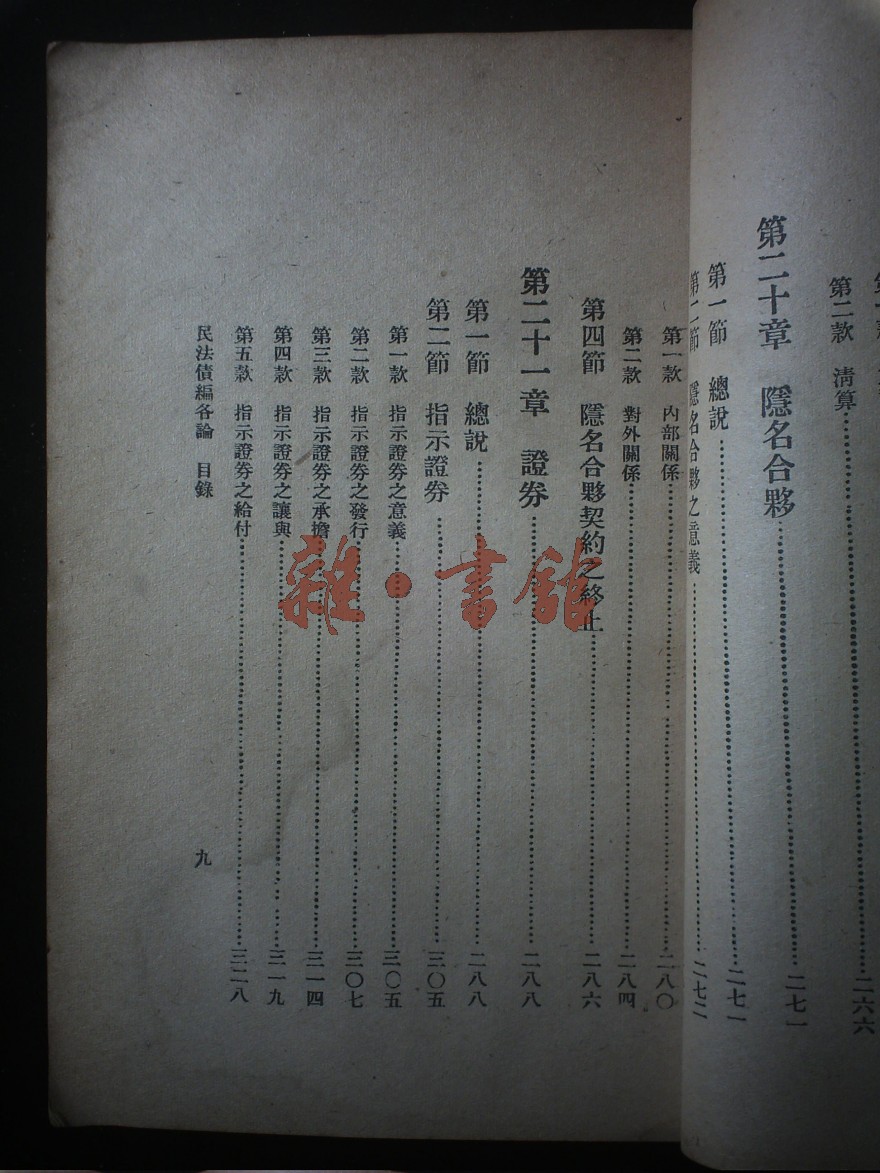 第二款 淸算 二六六
第二十章 隱名合夥 二七一
第一節 總說 二七一
第二節 隱名合夥之意義 二七二
第一款 內部關係 二八〇
第二款 對外關係 二八四
第四節 隱名合夥契約之終止 二八六
第二十一章 證券 二八八
第一節 總說 二八八
第二節 指示證券 三〇五
第一款 指示證券之意義 三〇五
第二款 指示證券之發行 三〇七
第三款 指示證券之承擔 三一四
第四款 指示證券之讓與 三一九
第五款 指示證券之給付 三二八
民法債編各論 目錄 九
雜·書館